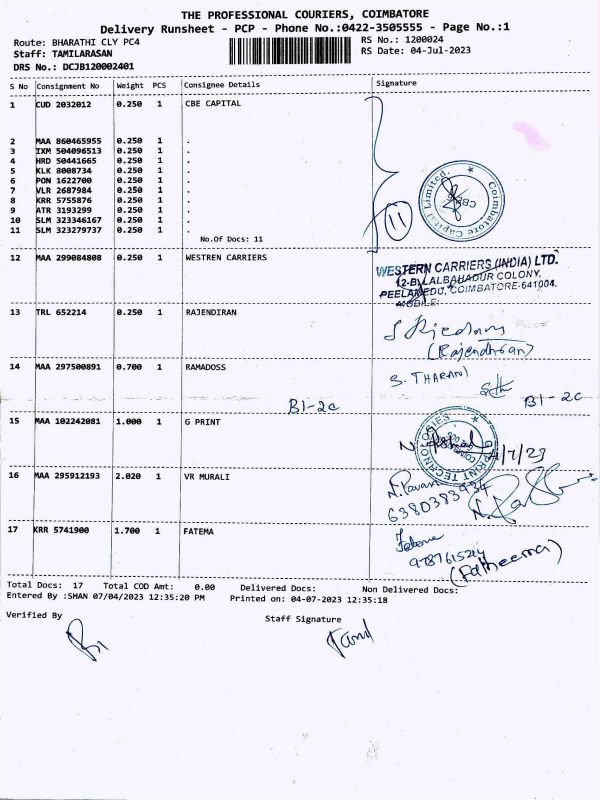 THE PROFESSIONAL COURIERS, COIMBATORE
Delivery Runsheet - PCP - Phone No.:0422-3505555 - Page No.:1
Route: BHARATHI CLY PC4
RS No.: 1200024
Staff: TAMILARASAN
RS Date: 04-Jul-2023
DRS No.: DCJB120002401
S No Consignment No Weight PCS Consignee Details Signature
1 CUD 2032012 0.250 1 CBE CAPITAL
2 MAA 860465955 0.250 1 .
3 IXM 504096513 0.250 1 .
4 HRD 50441665 0.250 1 .
5 KLK 8008734 0.250 1 .
6 PON 1622700 0.250 1 .
7 VLR 2687984 0.250 1 .
8 KRR 5755876 0.250 1 .
9 ATR 3193299 0.250 1 .
10 SLM 323346167 0.250 1 .
11 SLM 323279737 0.250 1 .
No.Of Docs: 11
11
Coimbatore Capital Limited.
CBE
12 MAA 299084808 0.250 1 WESTREN CARRIERS
WESTERN CARRIERS (INDIA) LTD.
12-B, LALBAHADUR COLONY,
PEELAMEDU, COIMBATORE-641004.
MOBILE:
13 TRL 652214 0.250 1 RAJENDIRAN
(Rajendhran)
14 MAA 297500891 0.700 1 RAMADOSS
S. THARANI
B1-2C
B1-2C
15 MAA 102242081 1.000 1 G PRINT
G PRINT TECHNOLOGIES
4/7/23
16 MAA 295912193 2.020 1 VR MURALI
N. Pavan
6380383934
17 KRR 5741900 1.700 1 FATEMA
(Fatheema)
Total Docs: 17 Total COD Amt: 0.00 Delivered Docs: Non Delivered Docs:
Entered By :SHAN 07/04/2023 12:35:20 PM Printed on: 04-07-2023 12:35:18
Verified By
Staff Signature